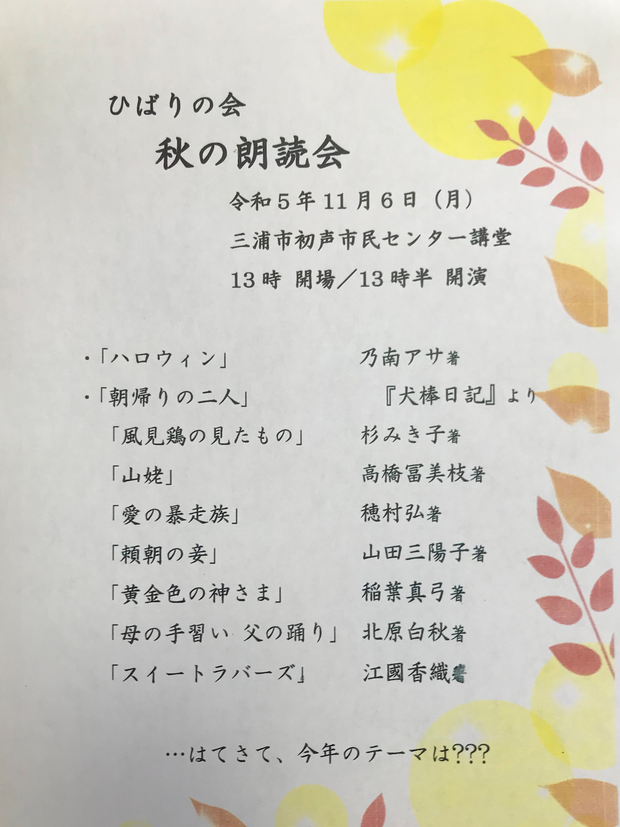 ひばりの会
秋の朗読会
令和5年11月6日（月）
三浦市初声市民センター講堂
13時 開場／13時半 開演
・「ハロウィン」 乃南アサ著
・「朝帰りの二人」 『犬棒日記』より
「風見鶏の見たもの」 杉みき子著
「山姥」 高橋冨美枝著
「愛の暴走族」 穂村弘著
「頼朝の妾」 山田三陽子著
「黄金色の神さま」 稲葉真弓著
「母の手習い 父の踊り」 北原白秋著
「スイートラバーズ」 江國香織著
…はてさて、今年のテーマは???